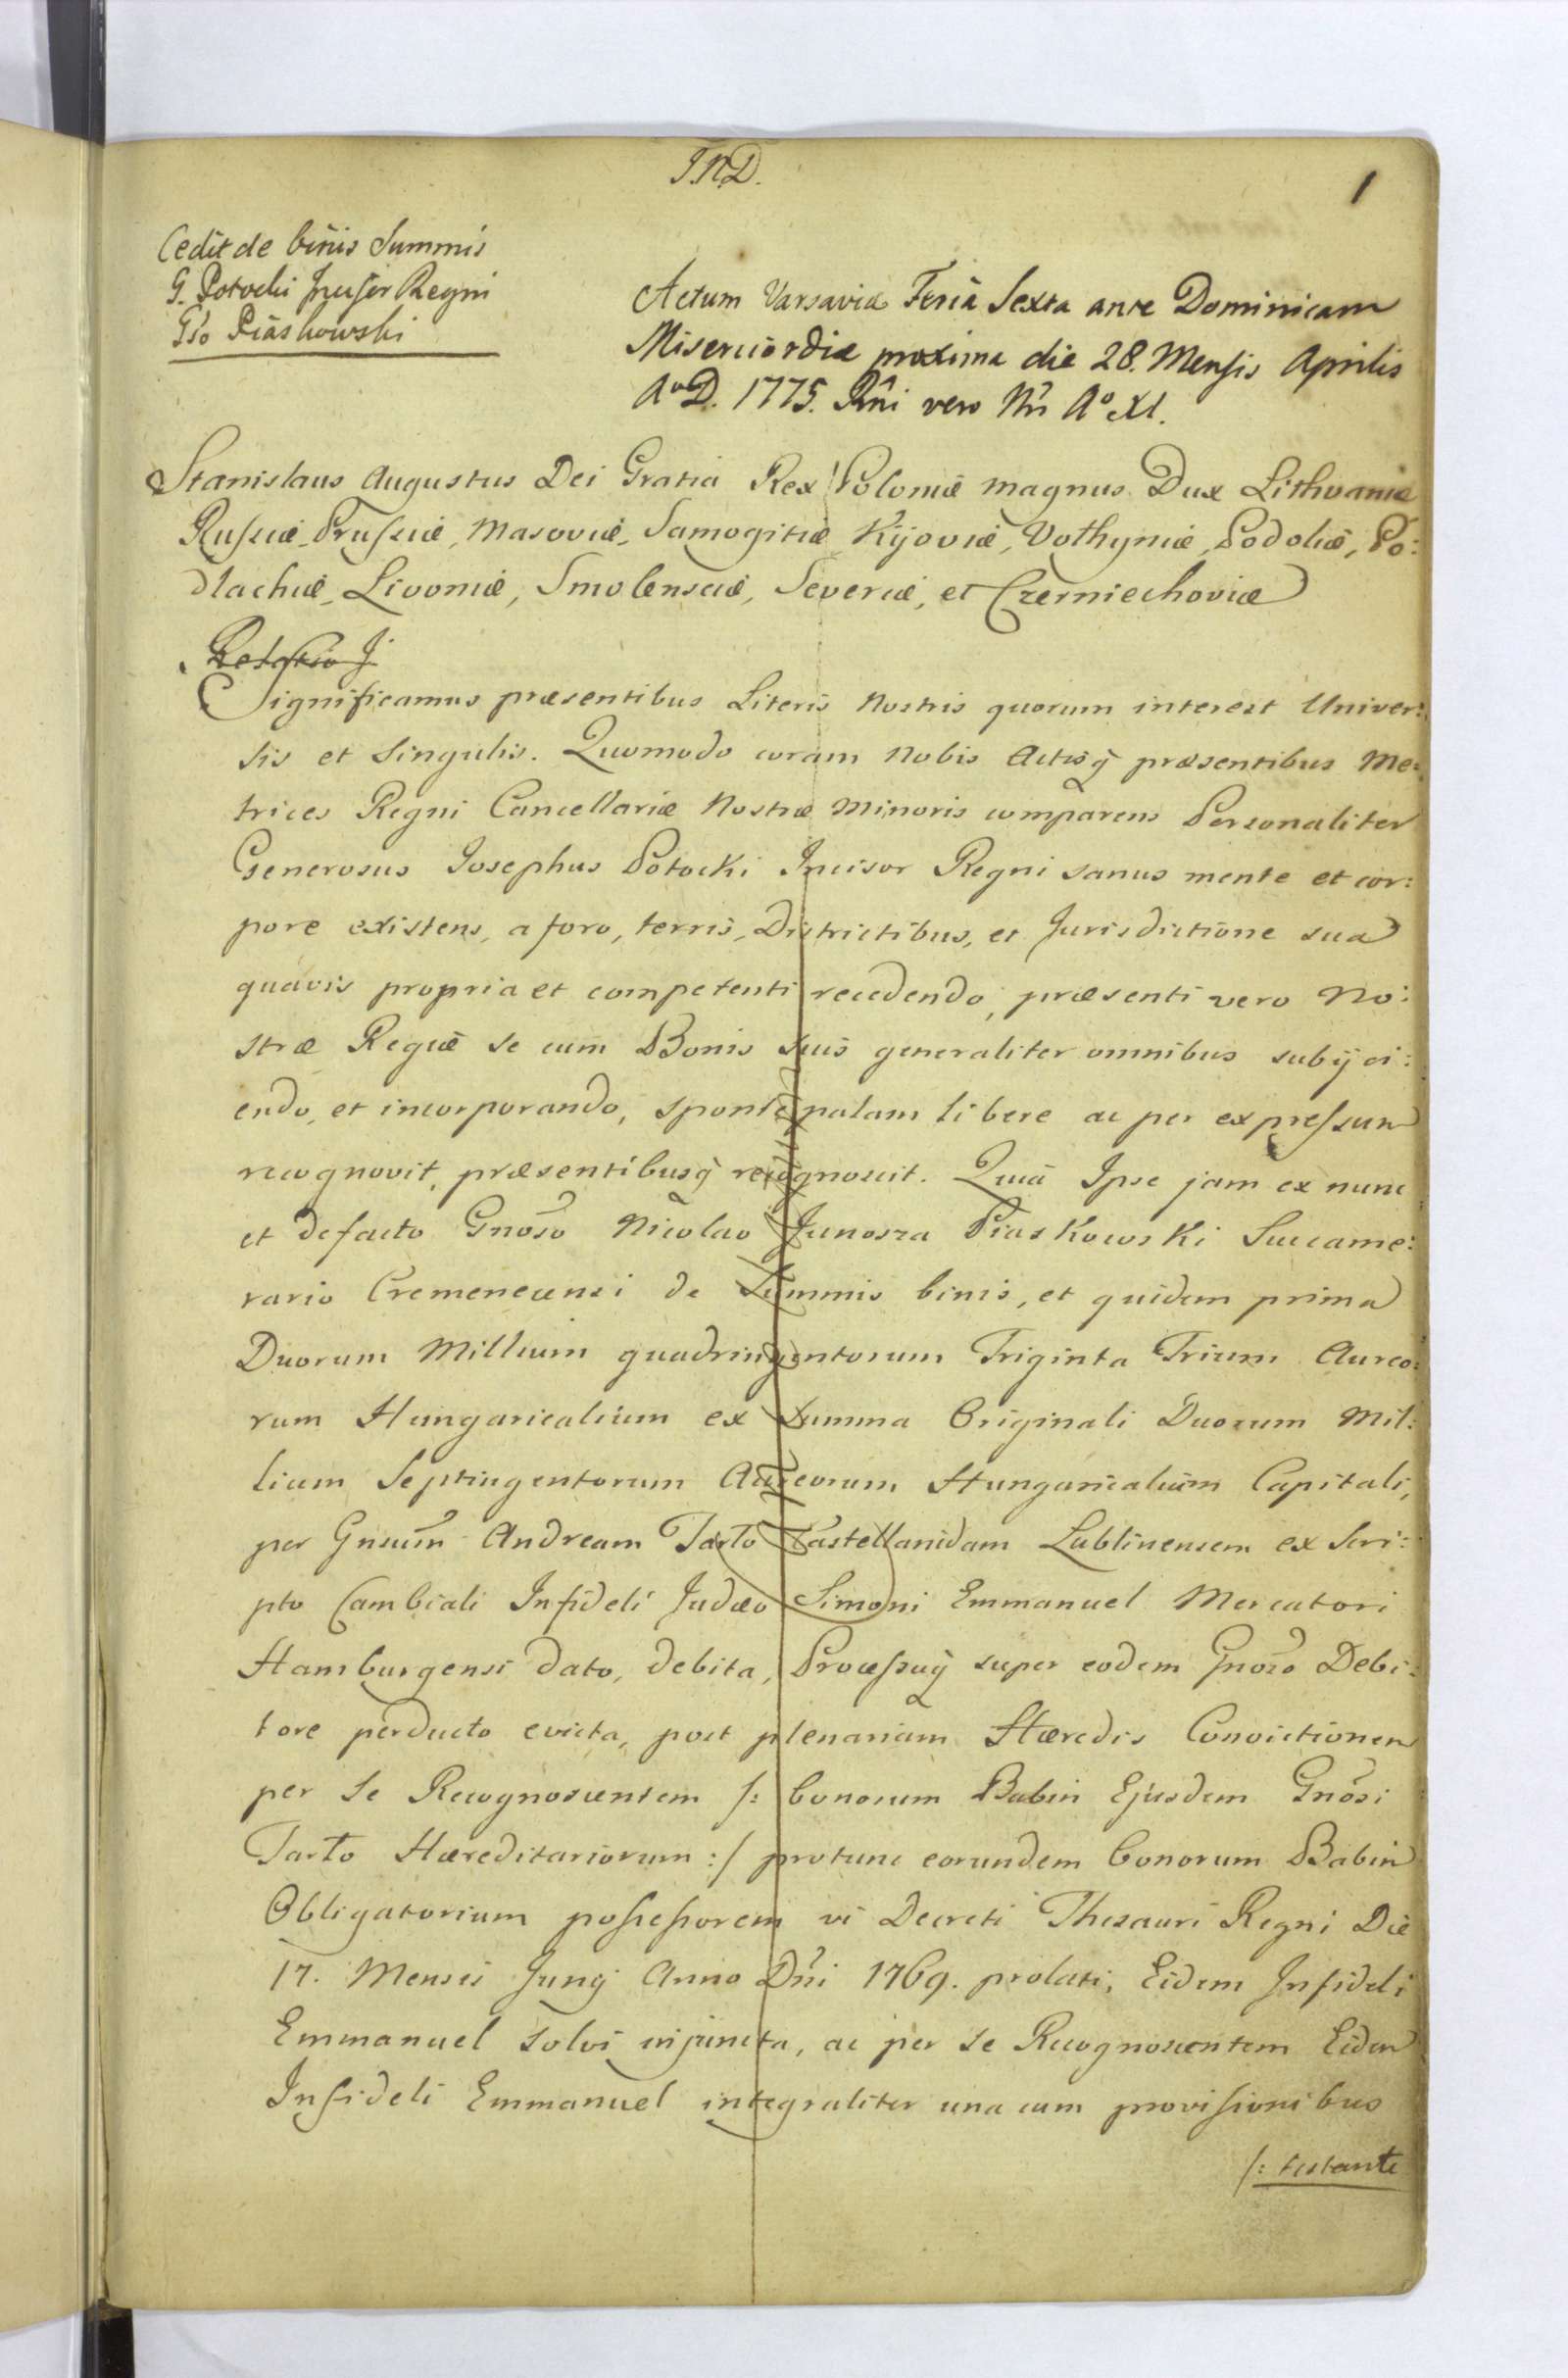 J.N.D.
1
Cedit de binis Summis
G. Potocki Incisor Regni
Gso Piaskowski
Actum Varsaviæ Feria Sexta ante Dominicam
Misericordiæ proxima die 28. Mensis Aprilis
Aº D. 1775. Rñi vero Nri Aº XI.
Stanislaus Augustus Dei Gratia Rex Poloniæ magnus Dux Lithvaniæ
Russiæ, Prussiæ, Masoviæ, Samogitiæ Kijoviæ, Volhyniæ, Podoliæ, Po:
dlachiæ, Livoniæ, Smolensciæ, Severiæ, et Czerniechoviæ
Significamus præsentibus Literis Nostris quorum interest Univer:
sis et Singulis. Quomodo coram Nobis Actisq̃ præsentibus Me:
trices Regni Cancellariæ Nostræ Minoris comparens Personaliter
Generosus Josephus Potocki Incisor Regni sanus mente et cor:
pore existens, a foro, terris, Districtibus, et Jurisdictione sua
quavis propria et competenti recedendo, præsenti vero No:
stræ Regiæ se cum Bonis suis generaliter omnibus subijci:
endo, et incorporando, sponte palam libere ac per expressum
recognovit, præsentibusq̃ recognoscit. Quia Ipse jam ex nunc
et defacto Gnõso Nicolao Junosza Piaskowski Succame:
rario Cremenecensi de Summis binis, et quidem prima
Duorum Millium quadringentorum Triginta Trium Aureo:
rum Hungaricalium ex Summa Originali Duorum Mil:
lium Septingentorum Aureorum Hungaricalium Capitali,
per Gnsum̃ Andream Tarło Castellanidam Lublinensem ex Scri:
pto Cambiali Infideli Judæo Simoni Emmanuel Mercatori
Hamburgensi dato, debita, Processuq̃ super eodem Gnõso Debi:
tore perducto evicta, post plenariam Hæredis Convictionem
per se Recognoscentem /: bonorum Babin Ejusdem Gnõsi
Tarło Hæreditariorum :/ protunc eorundem bonorum Babin
Obligatorium possessorem vi Decreti Thesauri Regni Die
17. Mensis Junij Anno Dñi 1769. prolati, Eidem Infideli
Emmanuel solvi injuncta, ac per se Recognoscentem Eidem
Infideli Emmanuel integraliter una cum provisionibus
/: testante